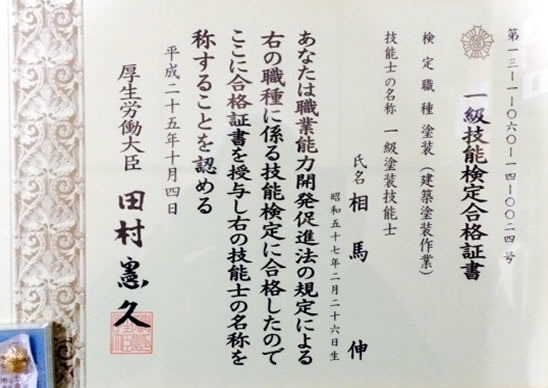 第一三―一―〇六〇―一四―〇〇二四号
一級技能検定合格証書
検定職種 塗装（建築塗装作業）
技能士の名称 一級塗装技能士
氏名 相馬 伸
昭和五十七年二月二十六日生
あなたは職業能力開発促進法の規定による
右の職種に係る技能検定に合格したので
ここに合格証書を授与し右の技能士の名称を
称することを認める
平成二十五年十月四日
厚生労働大臣 田村憲久